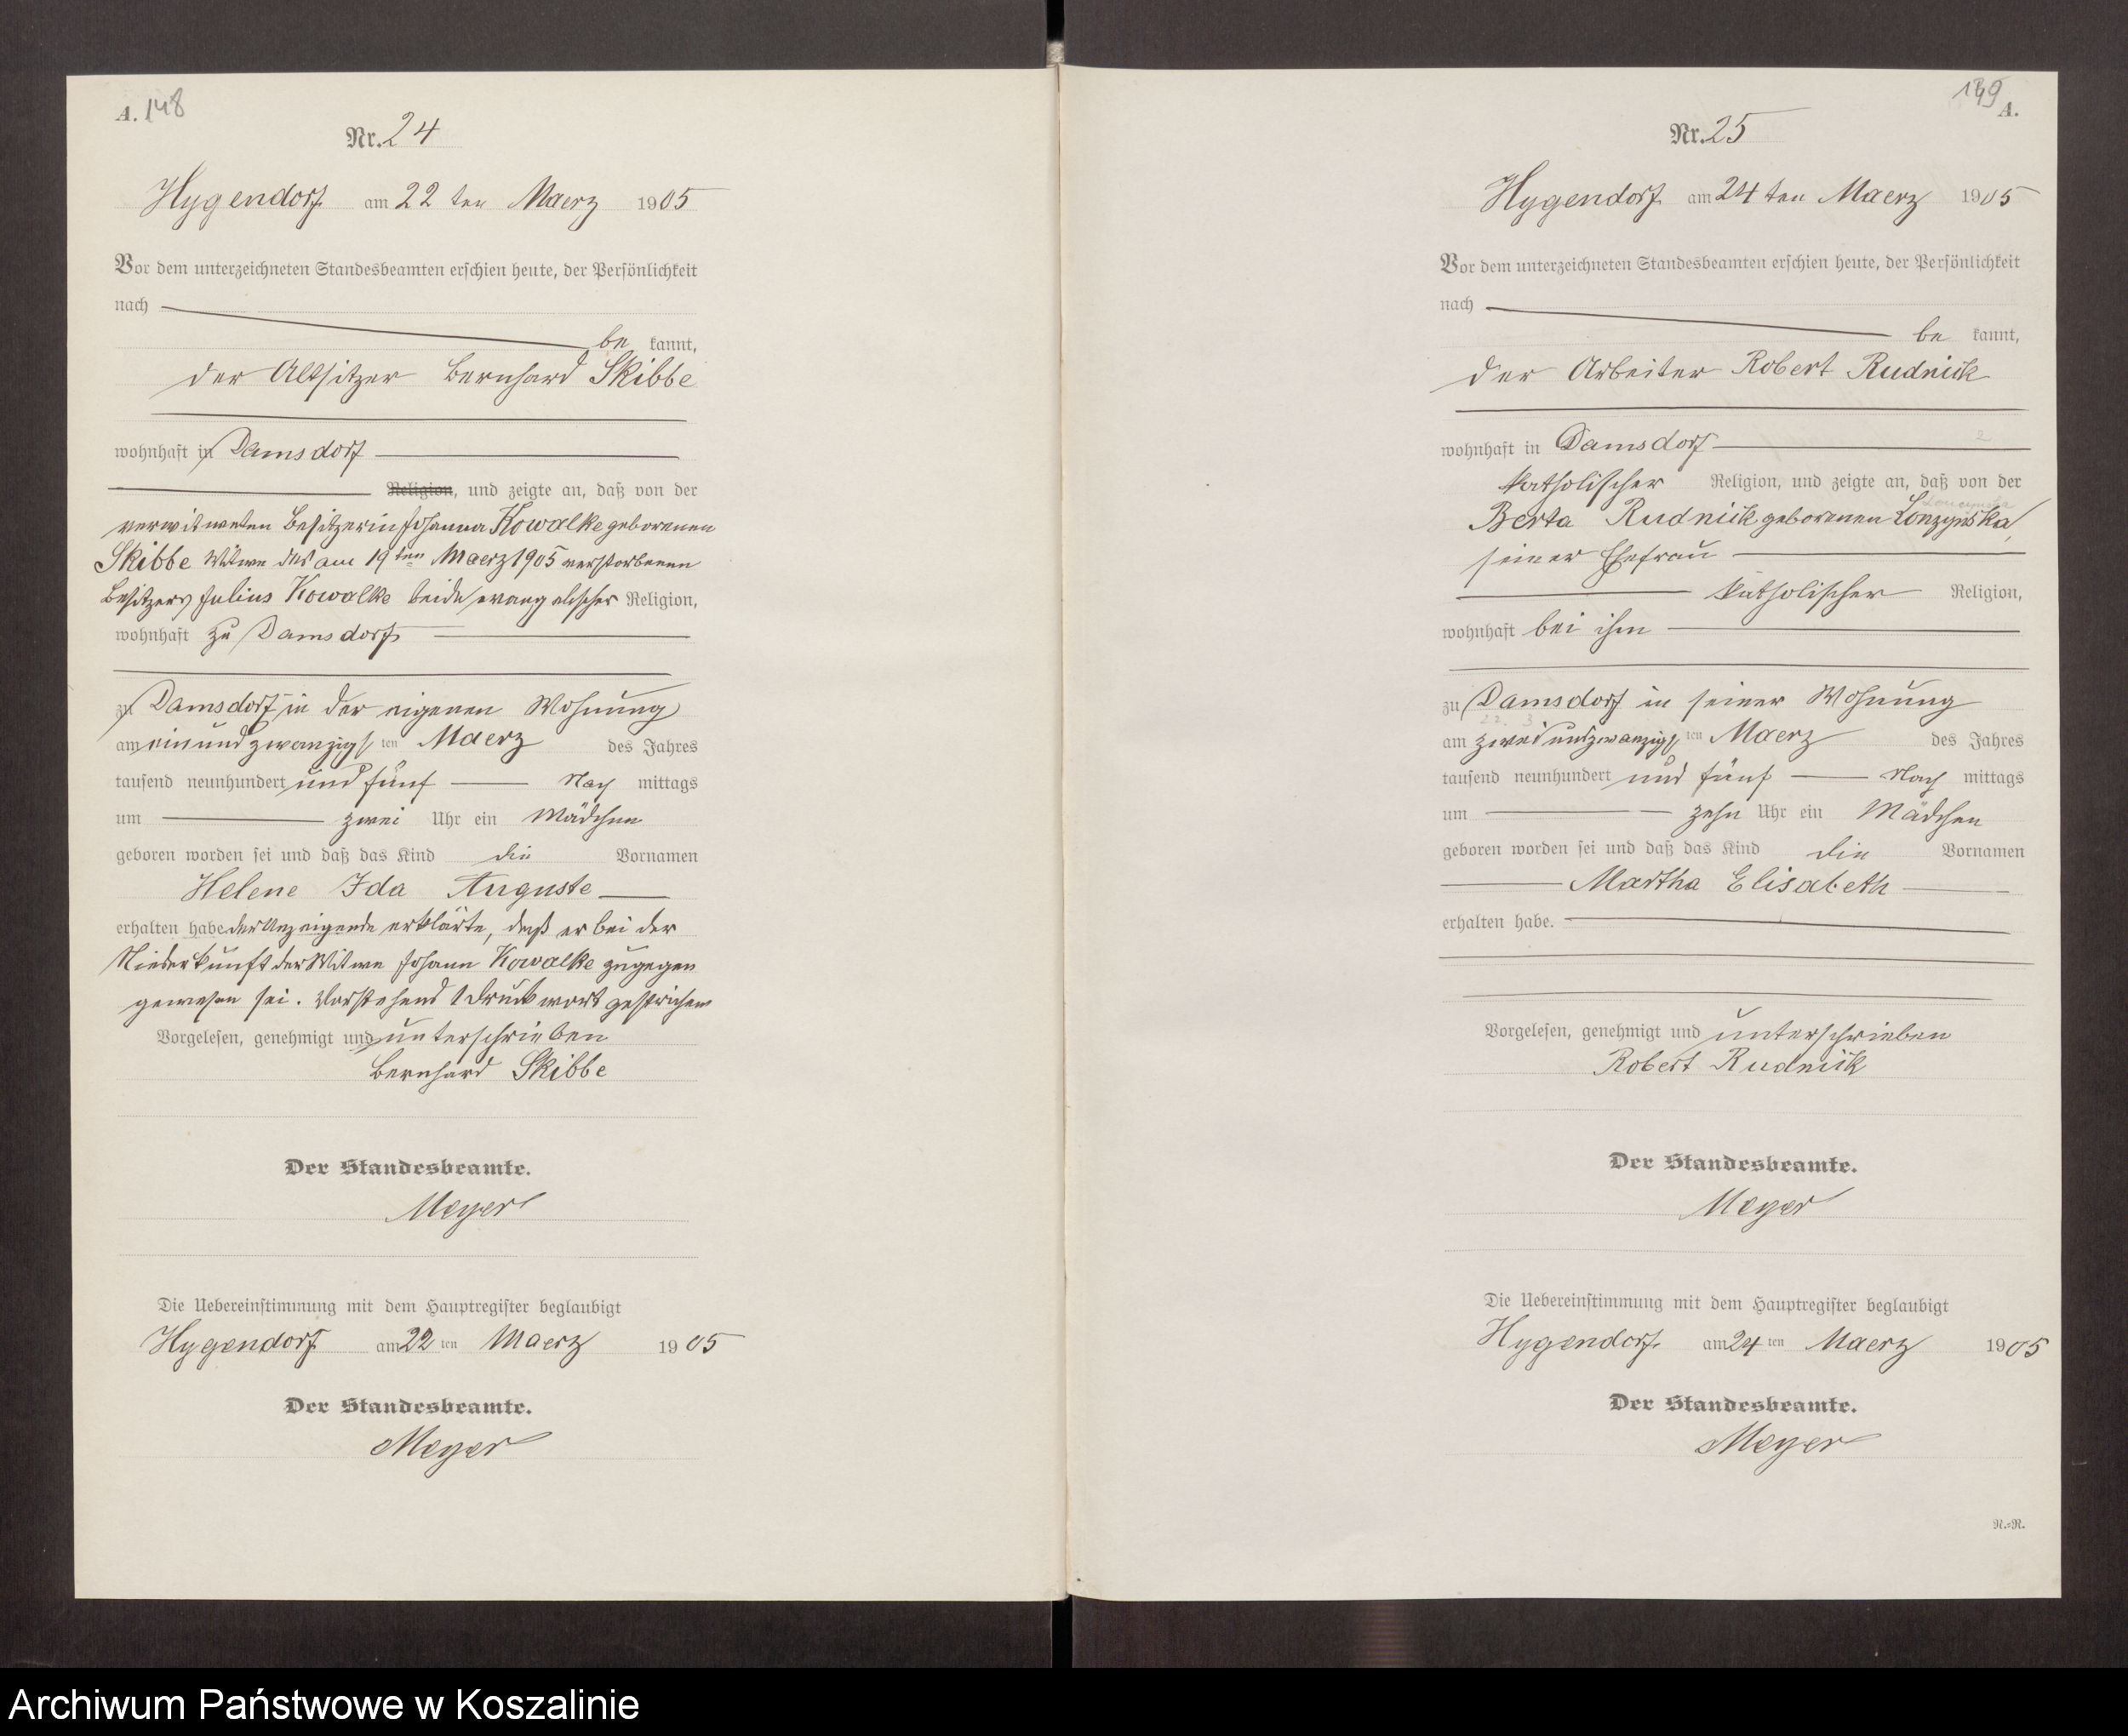 A. 148
Nr. 24
Hygendorf am 22 ten Maerz 1905
Vor dem unterzeichneten Standesbeamten erschien heute, der Persönlichkeit
nach
be kannt,
der Altsitzer Bernhard Skibbe
wohnhaft in Damsdorf
Religion, und zeigte an, daß von der
verwitweten Besitzerin Johanna Kowalke geborenen
Skibbe Witwe des am 19ten Maerz 1905 verstorbenen
Besitzers Julius Kowalke beide evangelischer Religion,
wohnhaft zu Damsdorf
zu Damsdorf in der eigenen Wohnung
am einundzwanzigs ten Maerz des Jahres
tausend neunhundert und fünf Nach mittags
um zwei Uhr ein Mädchen
geboren worden sei und daß das Kind die Vornamen
Helene Ida Auguste
erhalten habe der Anzeigende erklärte, daß er bei der
Niederkunft der Witwe Johann Kowalke zugegen
gewesen sei. Vorstehend 1 Druckwort gestrichen
Vorgelesen, genehmigt und unterschrieben
Bernhard Skibbe
Der Standesbeamte.
Meyer
Die Uebereinstimmung mit dem Hauptregister beglaubigt
Hygendorf am 22 ten Maerz 1905
Der Standesbeamte.
Meyer
149 A.
Nr. 25
Hygendorf am 24 ten Maerz 1905
Vor dem unterzeichneten Standesbeamten erschien heute, der Persönlichkeit
nach
be kannt,
der Arbeiter Robert Rudnick
wohnhaft in Damsdorf
katholischer Religion, und zeigte an, daß von der
Berta Rudnick geborenen Lonzynska,
seiner Ehefrau
katholischer Religion,
wohnhaft bei ihm
zu Damsdorf in seiner Wohnung
22. 3
am zweiundzwanzigs ten Maerz des Jahres
tausend neunhundert und fünf Nach mittags
um zehn Uhr ein Mädchen
geboren worden sei und daß das Kind die Vornamen
Martha Elisabeth
erhalten habe.
Vorgelesen, genehmigt und unterschrieben
Robert Rudnick
Der Standesbeamte.
Meyer
Die Uebereinstimmung mit dem Hauptregister beglaubigt
Hygendorf. am 24 ten Maerz 1905
Der Standesbeamte.
Meyer
R.=R.
Archiwum Państwowe w Koszalinie